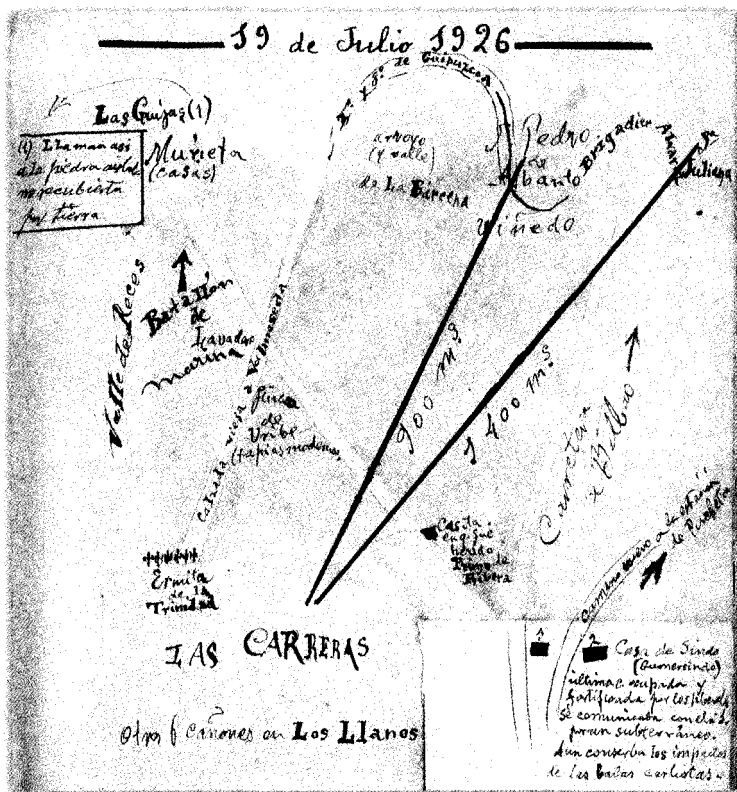 19 de Julio 1926
Las Guijas (1)
(1) Llaman asi
a la piedra
recubierta
por tierra
Murieta
(casas)
2º y 8º de Guipuzcoa
arroyo
(y valle)
de La Bárcena
S. Pedro
de
Abanto
viñedo
Brigadier
Sª
Juliana
Valle de
Batallón
de
Marina
Lavadero
Calzada vieja a Valmaseda
finca
de
Uribe
(tapias modernas)
900 mˢ
1400 mˢ
Carretera
a Bilbao
Casita
en q. fué
herido
Primo de
Ribera
camino nuevo a la estación
de
Ermita
de la
Trinidad
LAS CARRERAS
Otros 6 cañones en Los Llanos
1
2
Casa de Sindo
(Gumersindo)
última c. ocupada y
fortificada por los liberales
Se comunicaba con el nº 1
por un subterráneo.
Aun conserva los impactos
de las balas carlistas.